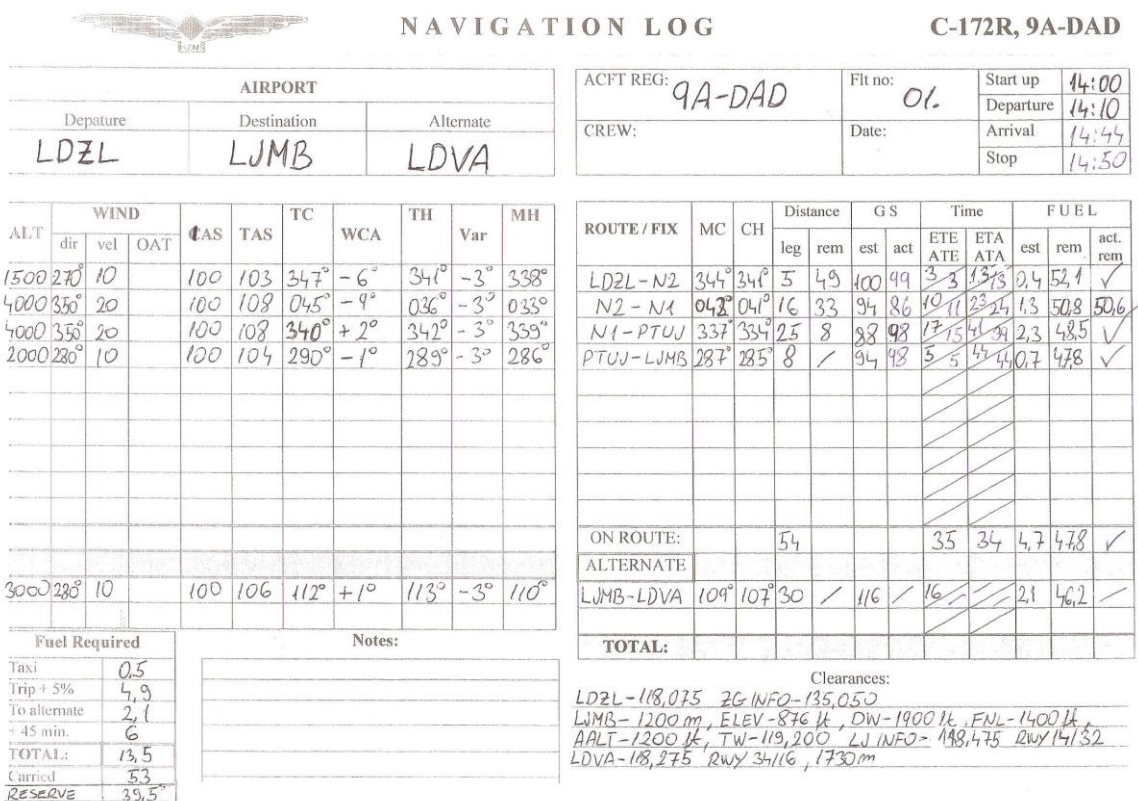 NAVIGATION LOG C-172R, 9A-DAD
AIRPORT
Depature Destination Alternate
LDZL LJMB LDVA
ACFT REG: 9A-DAD Flt no: 01. Start up 14:00
Departure 14:10
CREW: Date: Arrival 14:44
Stop 14:50
ALT WIND CAS TAS TC WCA TH Var MH
dir vel OAT
1500 270° 10 100 103 347° -6° 341° -3° 338°
4000 350° 20 100 108 045° -9° 036° -3° 033°
4000 350° 20 100 108 340° +2° 342° -3° 339°
2000 280° 10 100 104 290° -1° 289° -3° 286°
3000 280° 10 100 106 112° +1° 113° -3° 110°
ROUTE / FIX MC CH Distance GS Time FUEL
leg rem est act ETE ATE ETA ATA est rem act. rem
LDZL-N2 344° 341° 5 49 100 99 3 3 13 13 0,4 52,1 ✓
N2-N1 042° 041° 16 33 94 86 10 11 23 24 1,3 50,8 50,6
N1-PTUJ 337° 334° 25 8 88 98 17 15 41 39 2,3 48,5 ✓
PTUJ-LJMB 287° 285° 8 / 94 98 5 5 44 44 0,7 47,8 ✓
ON ROUTE: 54 35 34 4,7 47,8 ✓
ALTERNATE
LJMB-LDVA 109° 107° 30 / 116 / 16 2,1 46,2 –
TOTAL:
Fuel Required
Taxi 0,5
Trip + 5% 4,9
To alternate 2,1
+ 45 min. 6
TOTAL: 13,5
Carried 53
RESERVE 39,5
Notes:
Clearances:
LDZL-118,075 ZG INFO-135,050
LJMB-1200 m, ELEV-876 ft, DW-1900 ft, FNL-1400 ft,
AALT-1200 ft, TW-119,200 LJ INFO- 118,475 RWY 14/32
LDVA-118,275 RWY 34/16, 1730 m